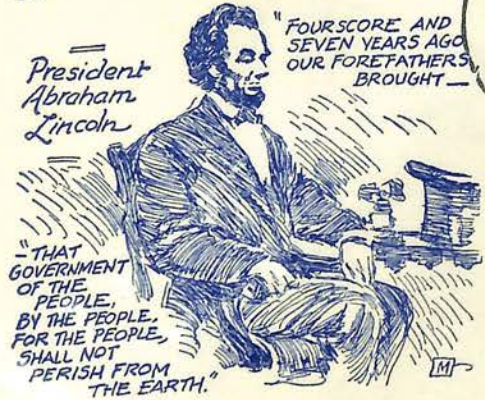 President
Abraham
Lincoln
"FOURSCORE AND
SEVEN YEARS AGO
OUR FOREFATHERS
BROUGHT—
"—THAT
GOVERNMENT
OF THE
PEOPLE,
BY THE PEOPLE,
FOR THE PEOPLE,
SHALL NOT
PERISH FROM
THE EARTH."
M